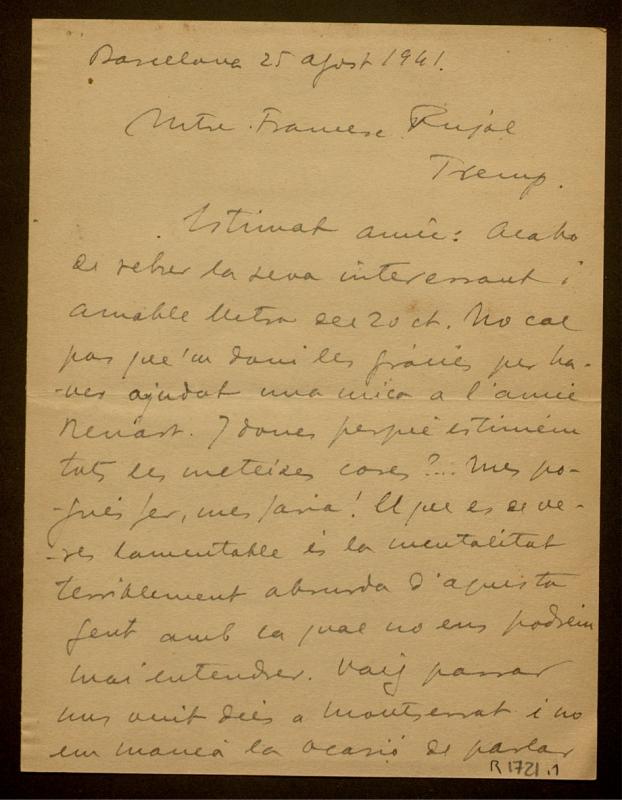 Barcelona 25 agost 1941.
Mtre. Francesc Pujol
Tremp.
Estimat amic: Acabo
de rebrer la seva interessant i
amable lletra del 20 ct. No cal
pas que'm doni les gràcies per ha-
-ver ajudat una mica a l'amic
Renart. I doncs perquè estimém
tots les meteixes coses?... Mes po-
-gués fer, mes faria! El que es de ve-
-res lamentable és la mentalitat
terriblement absurda d'aquesta
gent amb la qual no ens podrém
mai entendrer. Vaig passar
uns vuit dies a Montserrat i no
em mancà la ocasió de parlar
R 1721.1